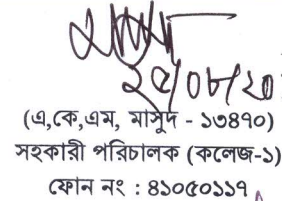 ২৫/০৮/২০
(এ,কে,এম, মাসুদ - ১৩৪৭০)
সহকারী পরিচালক (কলেজ-১)
ফোন নং : ৪১০৫০১১৭